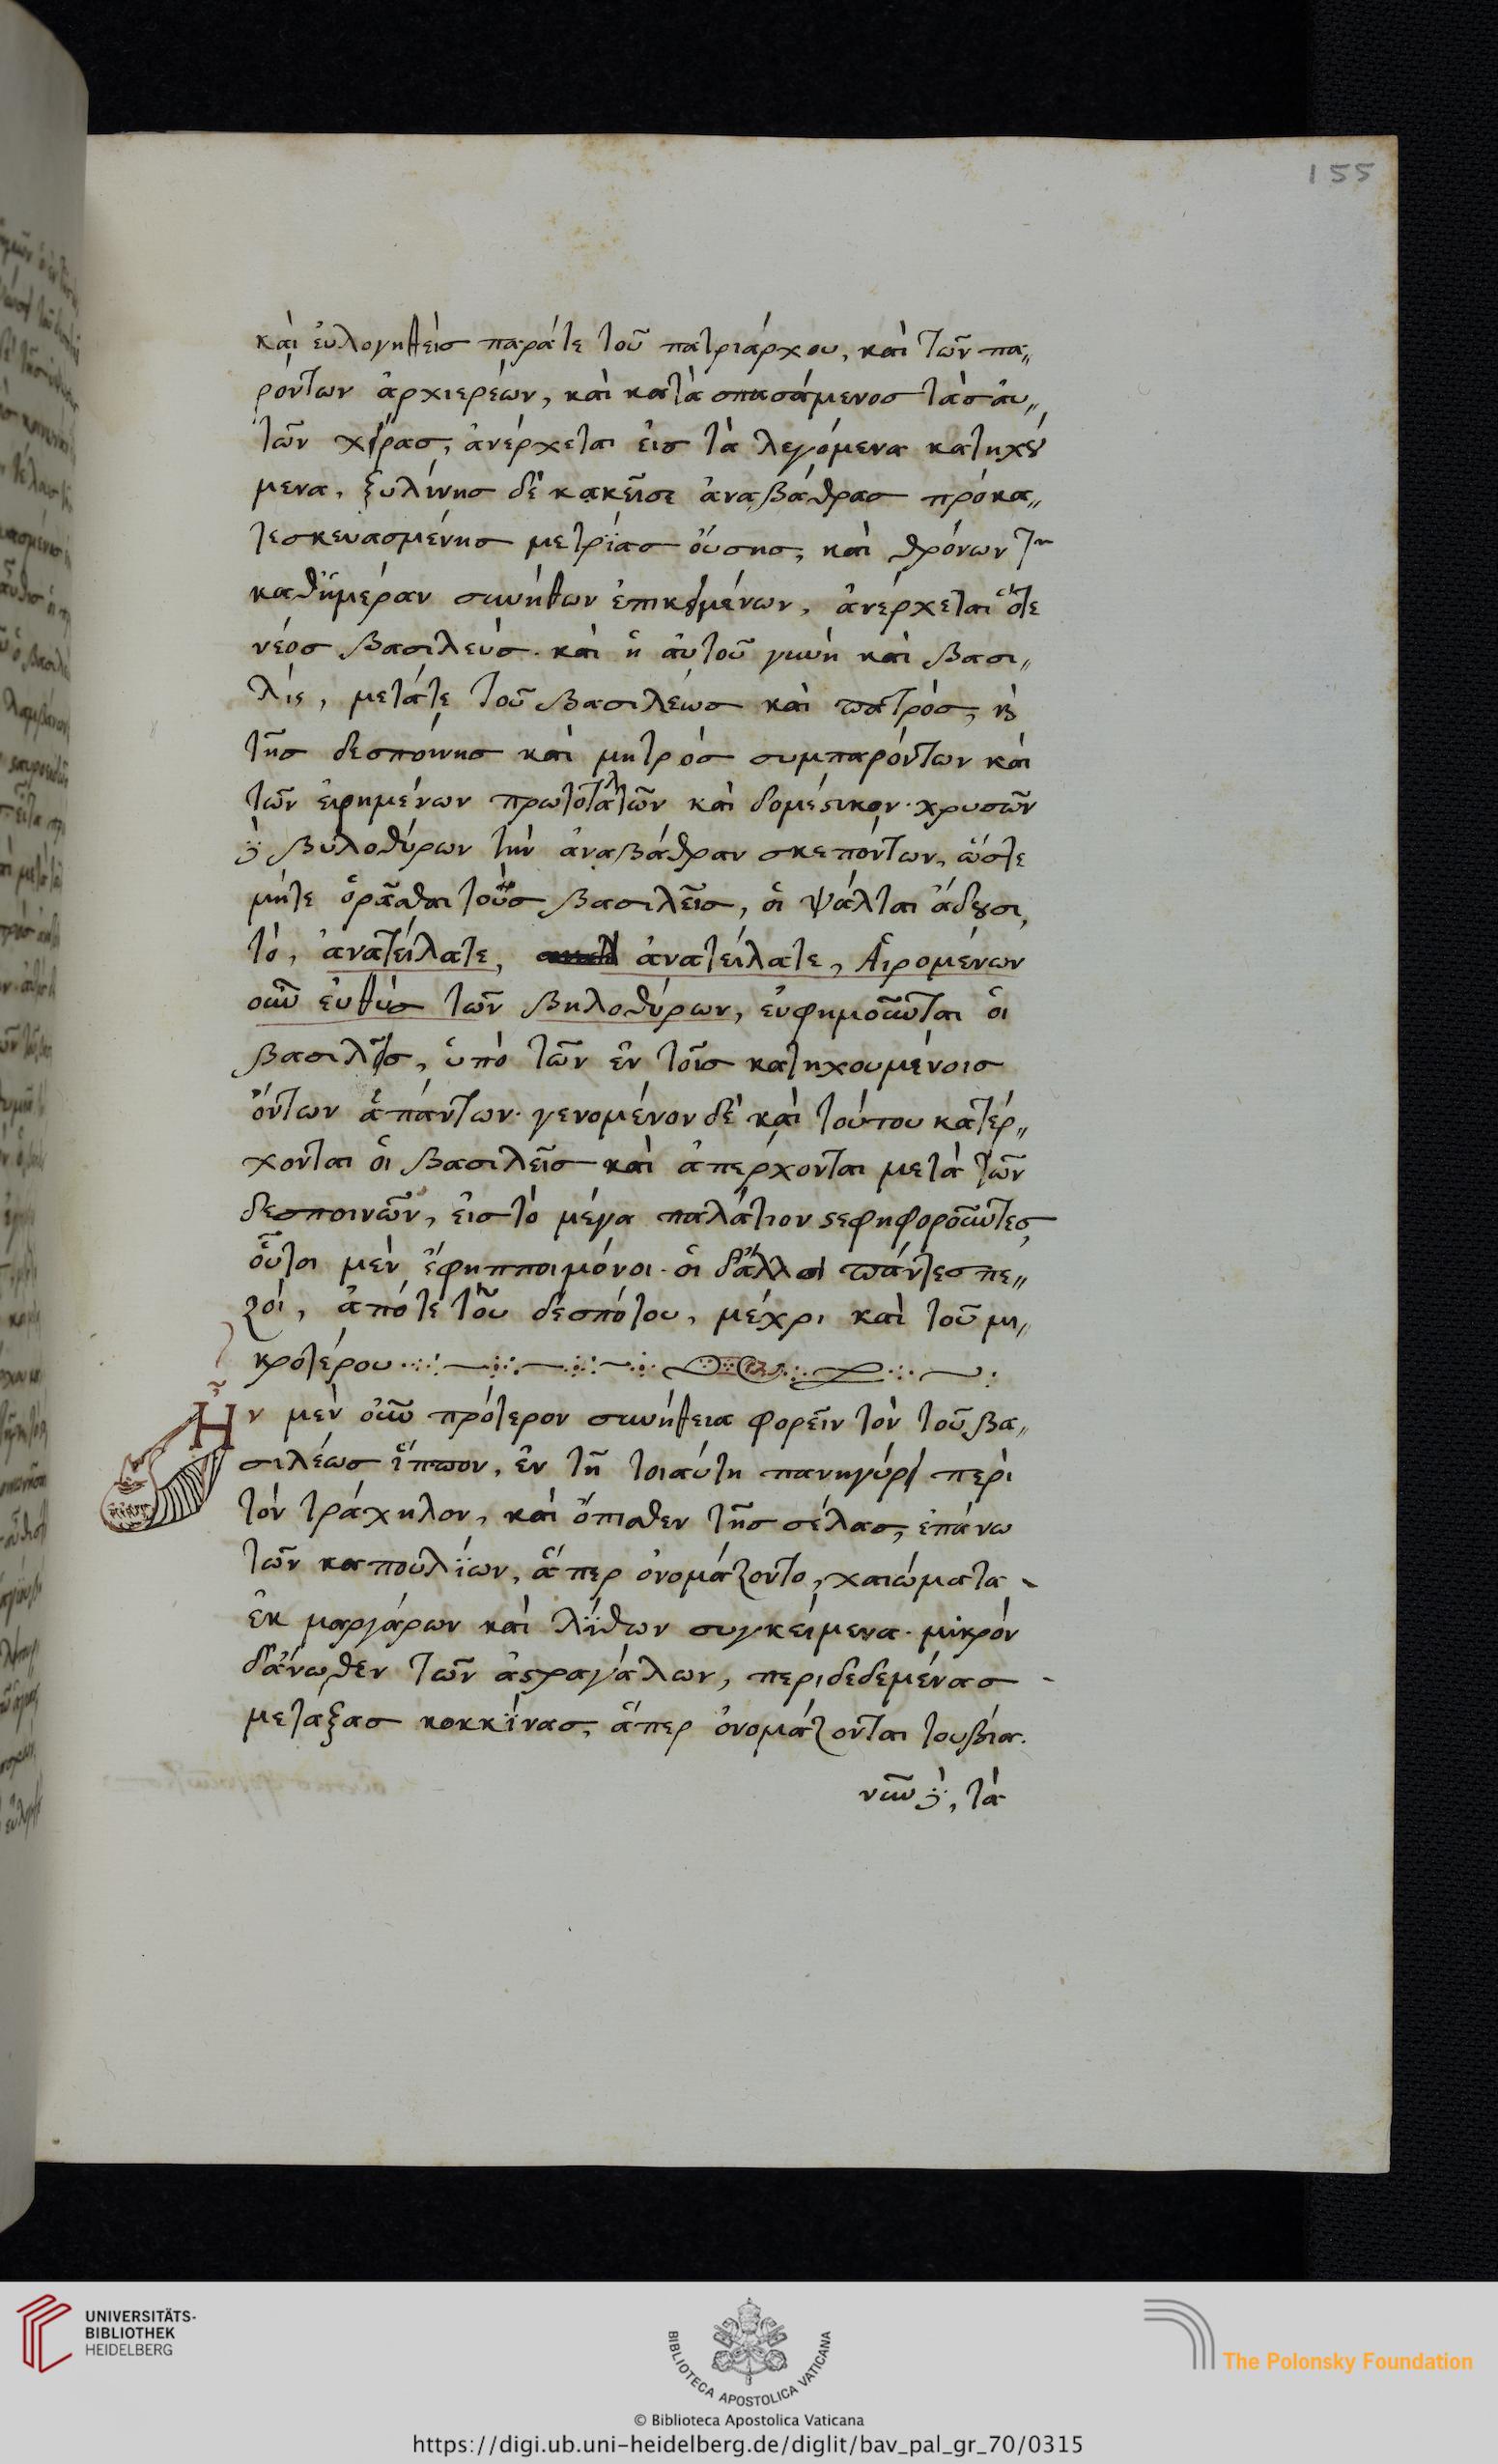 155
καὶ ἐυλογηθεὶσ παράτε τοῦ πατριάρχου, καὶ τῶν πα„
ρόντων ἀρχιερέων, καὶ κατὰ σπασάμενοσ τὰσ ἀυ„
τῶν χεῖρασ, ἀνέρχεται ἐισ τὰ λεγόμενα κατηχού
μενα. ξυλίνησ δὲ κακεῖσε ἀναβάθρασ πρόκα„
τεσκευασμένησ μετρϊασ ὀύσησ, καὶ θρόνων τῶν
καθἡμέραν συνήθων ἐπικειμένων, ἀνέρχεται ὅτε
νέοσ βασιλεὺσ. καὶ ἡ ἀυτοῦ γυνὴ καὶ βασι„
λὶς, μετάτε τοῦ βασιλέωσ καὶ πατρόσ, κὶ
τῆσ δεσποίνησ καὶ μητρὸσ συμπαρόντων καὶ
τῶν ἐιρημένων πρωτοταλτῶν καὶ δομέστικον. χρυσῶν
δὲ βυλοθύρων τὴν ἀναβάθραν σκεπόντων, ὥστε
μήτε ὁρᾶσθαι τοὺσ βασιλεῖσ, ὁι ψάλται ἄδουσι,
τὸ, ἀνατείλατε, ἀνατείλατε, Ἀιρομένων
οὖν ἐυθὺσ τῶν βηλοθύρων, ἐυφημοῦνται ὁι
βασιλεῖσ, ὑπὸ τῶν ἐν τοῖσ κατηχουμένοισ
ὄντων ἁπάντων. γενομένον δὲ καὶ τούτου κατέρ„
χονται ὁι βασιλεῖσ καὶ ἀπέρχονται μετὰ τῶν
δεσποινῶν, ἐισ τὸ μέγα παλάτιον στεφηφοροῦντεσ,
οὗτοι μὲν ἔφηπποι μόνοι. ὁι δἄλλοι πάντεσ πε„
ζοί, ἀπότε τοῦ δεσπότου, μέχρι καὶ τοῦ μι„
κροτέρου
Ἦν μὲν οὖν πρότερον συνήθεια φορεῖν τὸν τοῦ βα„
σιλέωσ ἵππον, ἐν τῇ τοιαύτῃ πανηγύρει περὶ
τὸν τράχηλον, καὶ ὄπισθεν τῆσ σέλασ, ἐπάνω
τῶν καπουλϊων, ἅπερ ὀνομάζοντο, χαιώματα
ἐκ μαργάρων καὶ λΐθων συγκείμενα. μικρὸν
δἄνωθεν τῶν ἀστραγάλων, περιδεδεμένασ
μετάξασ κοκκΐνασ, ἅπερ ὀνομάζονται τουβία.
νῦν δὲ, τὰ
UNIVERSITÄTS-
BIBLIOTHEK
HEIDELBERG
BIBLIOTECA APOSTOLICA VATICANA
The Polonsky Foundation
© Biblioteca Apostolica Vaticana
https://digi.ub.uni-heidelberg.de/diglit/bav_pal_gr_70/0315